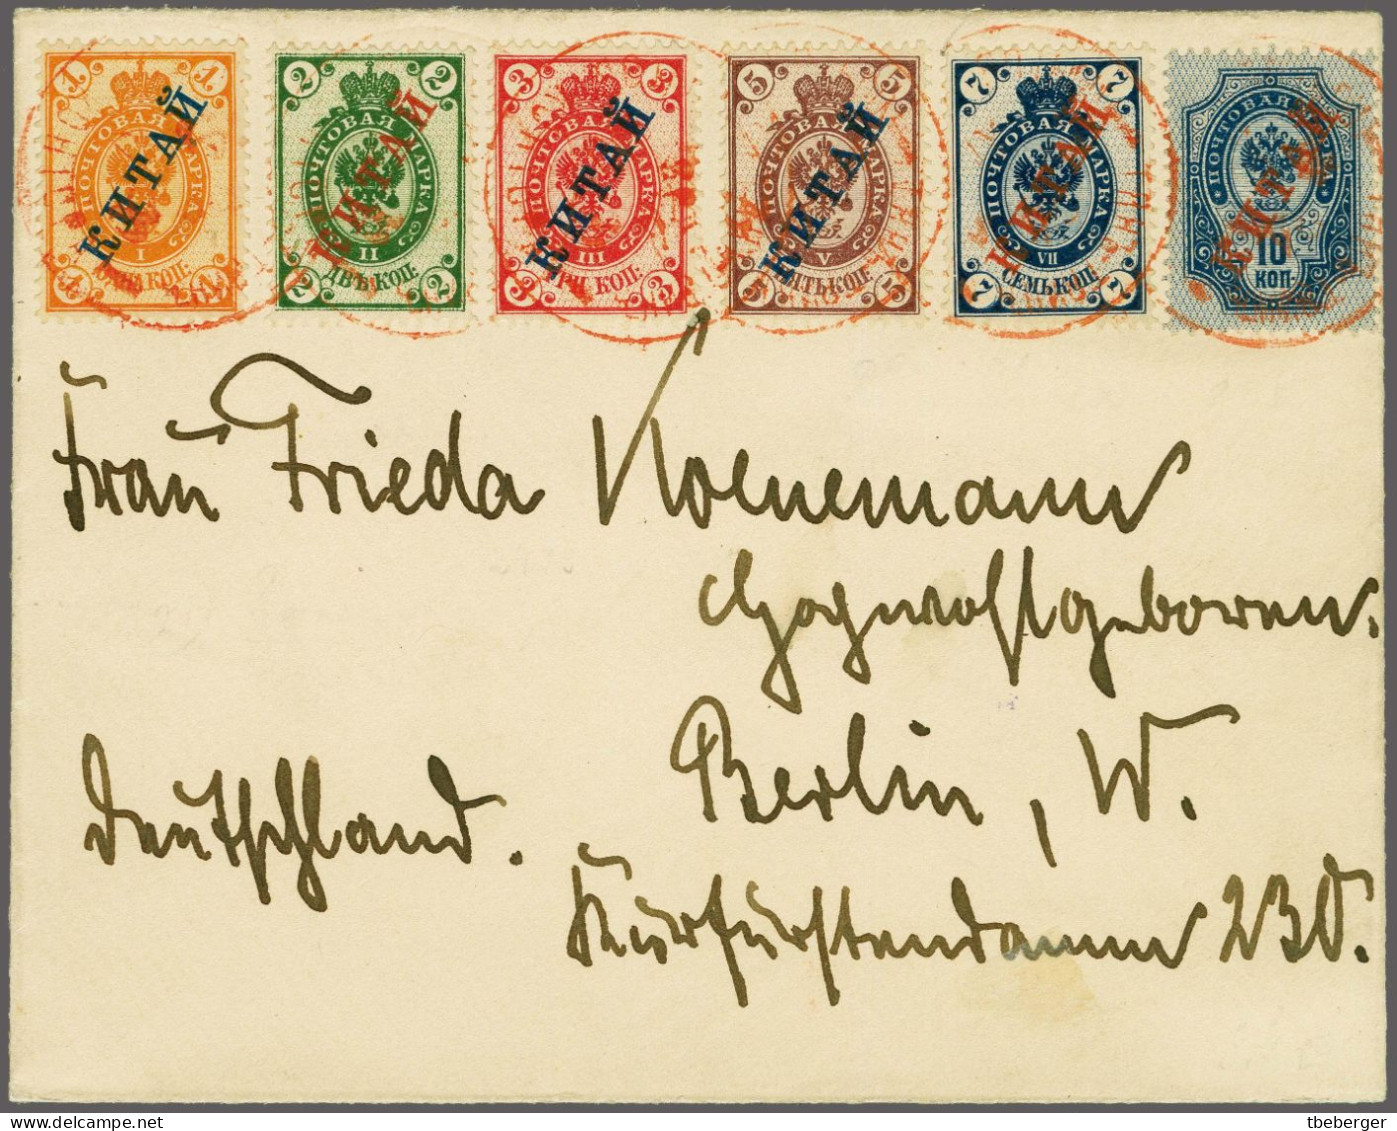 1 1 КИТАЙ ПОЧТОВАЯ МАРКА I КОП: 1 1
2 2 КИТАЙ ПОЧТОВАЯ МАРКА II ДВѢ КОП: 2 2
3 3 КИТАЙ ПОЧТОВАЯ МАРКА III ТРИ КОП: 3 3
5 5 КИТАЙ ПОЧТОВАЯ МАРКА V ПЯТЬ КОП: 5 5
7 7 КИТАЙ ПОЧТОВАЯ МАРКА VII СЕМЬ КОП: 7 7
КИТАЙ ПОЧТОВАЯ МАРКА 10 КОП
Frau Frieda Koenemann
Hochwohlgeboren.
Berlin, W.
Deutschland.
Kurfürstendamm 230.
tbeberger